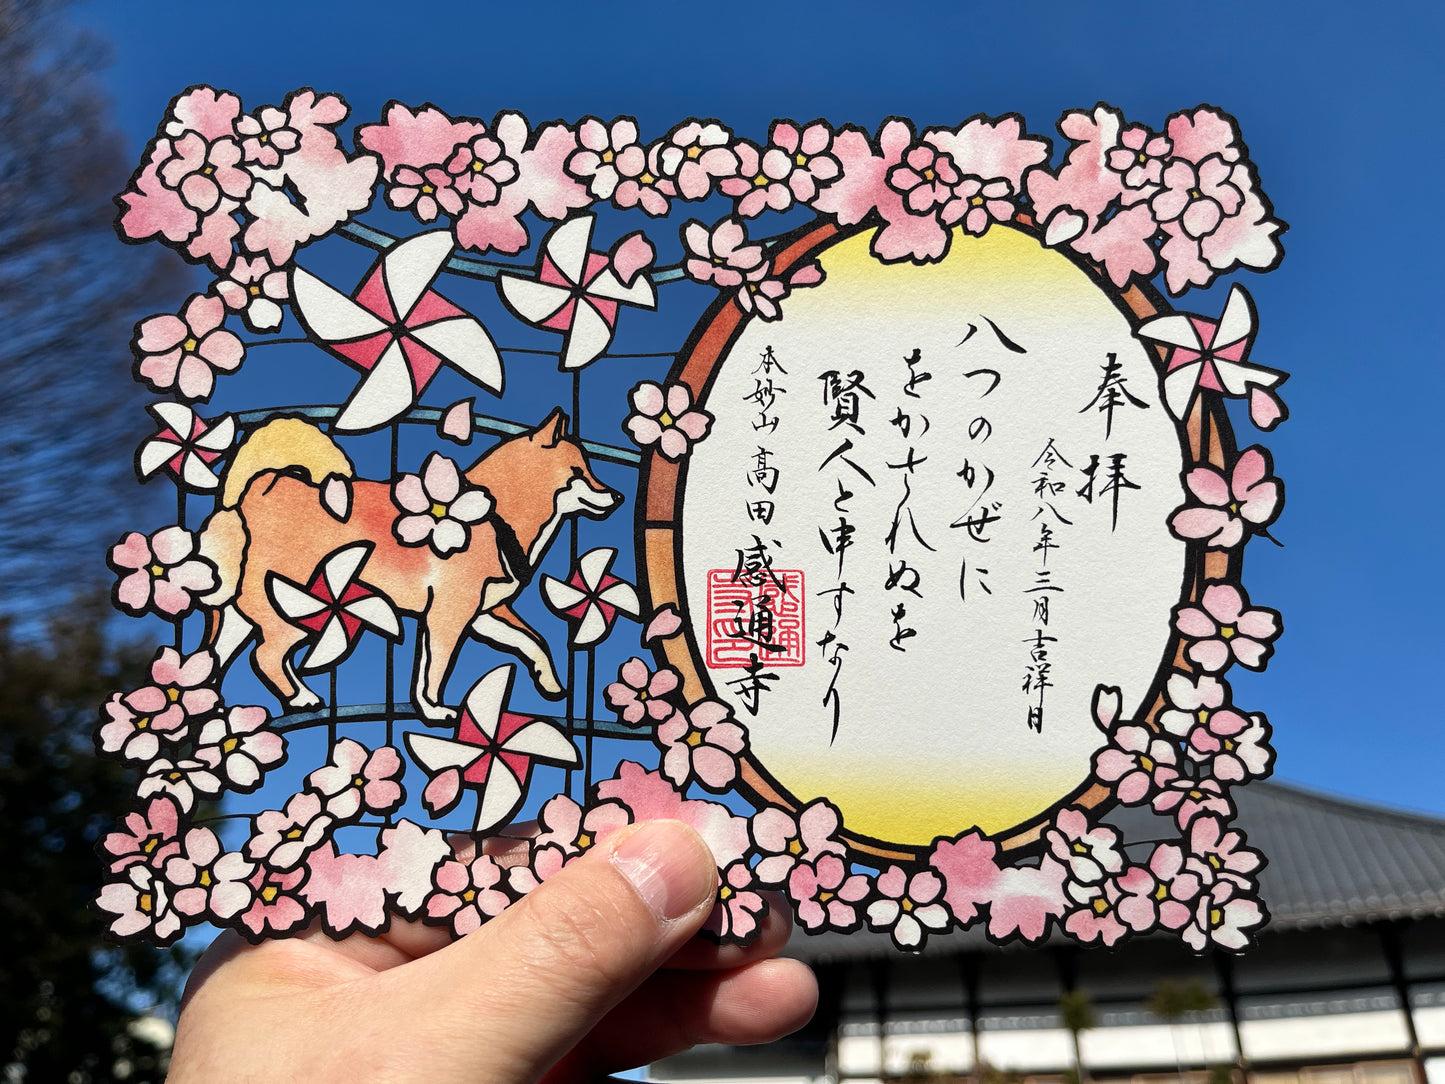 奉拝
令和八年三月吉祥日
八つのかぜに
をかされぬを
賢人と申すなり
本妙山 高田 感通寺